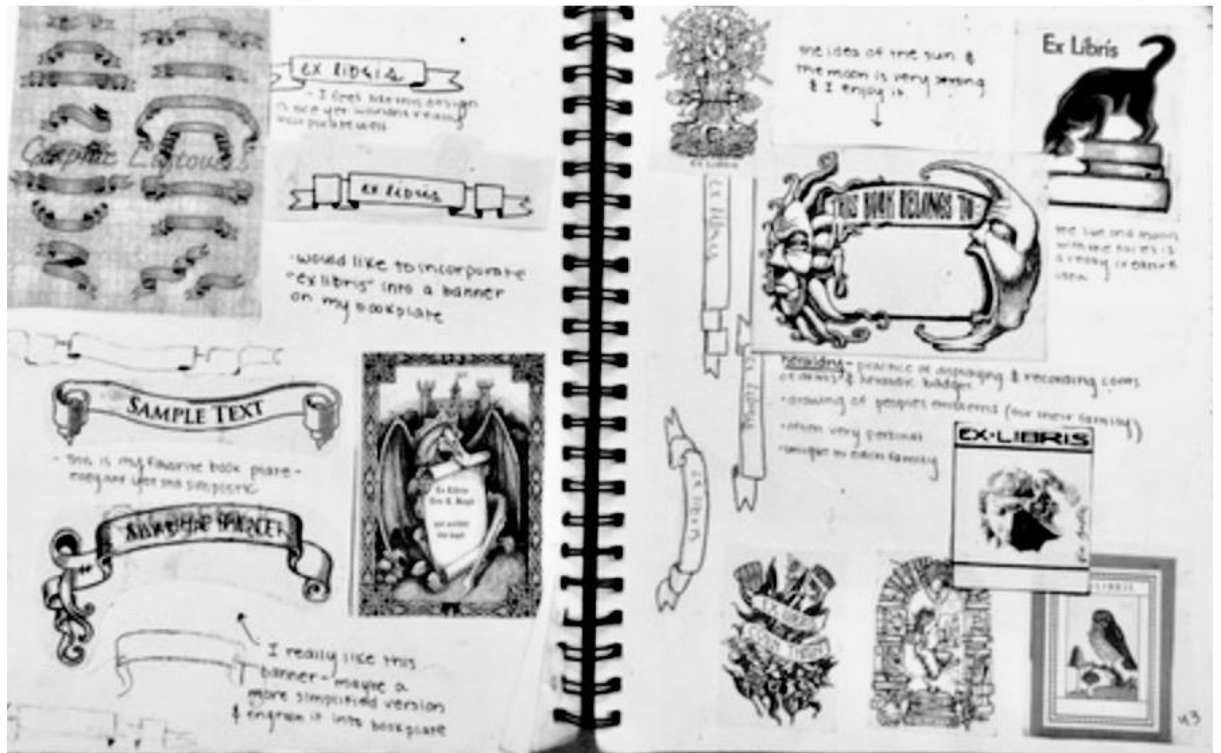 Graphic Leftovers
ex libris
- I feel like this design
is nice yet wouldn't really
incorporate well
ex libris
- would like to incorporate
"ex libris" into a banner
on my bookplate
SAMPLE TEXT
- this is my favorite book plate -
elegant yet still simplistic
Ex Libris
I really like this
banner - maybe a
more simplified version
& engrave it into bookplate
Ex Libris
the idea of the sun &
the moon is very strong
& I enjoy it
Ex Libris
ex libris
THIS BOOK BELONGS TO
the sun and moon
with the faces is
a really creative
idea
heraldry - practice of displaying & recording coats
of arms & heraldic badges
ex libris
- drawing of peoples emblems (for their family)
- often very personal
- unique to each family
EX-LIBRIS
ex libris
43